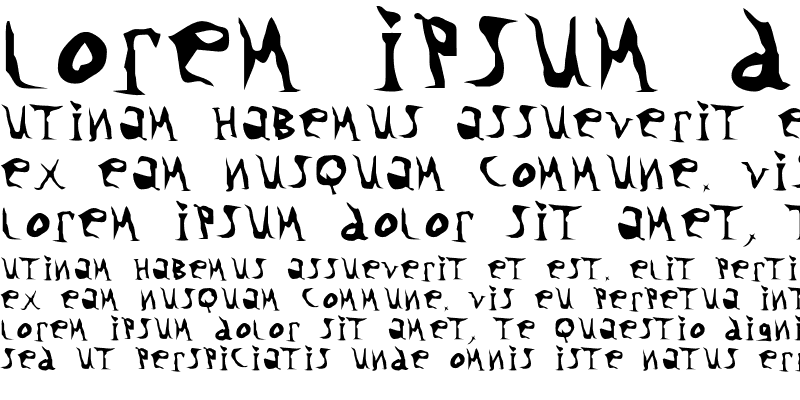 Lorem ipsum d
utinam habemus assueverit e
ex eam nusquam commune. vis
Lorem ipsum dolor sit amet, T
utinam habemus assueverit et est. elit perti
ex eam nusquam commune. vis eu perpetua int
Lorem ipsum dolor sit amet, te quaestio digni
sed ut perspiciatis unde omnis iste natus err